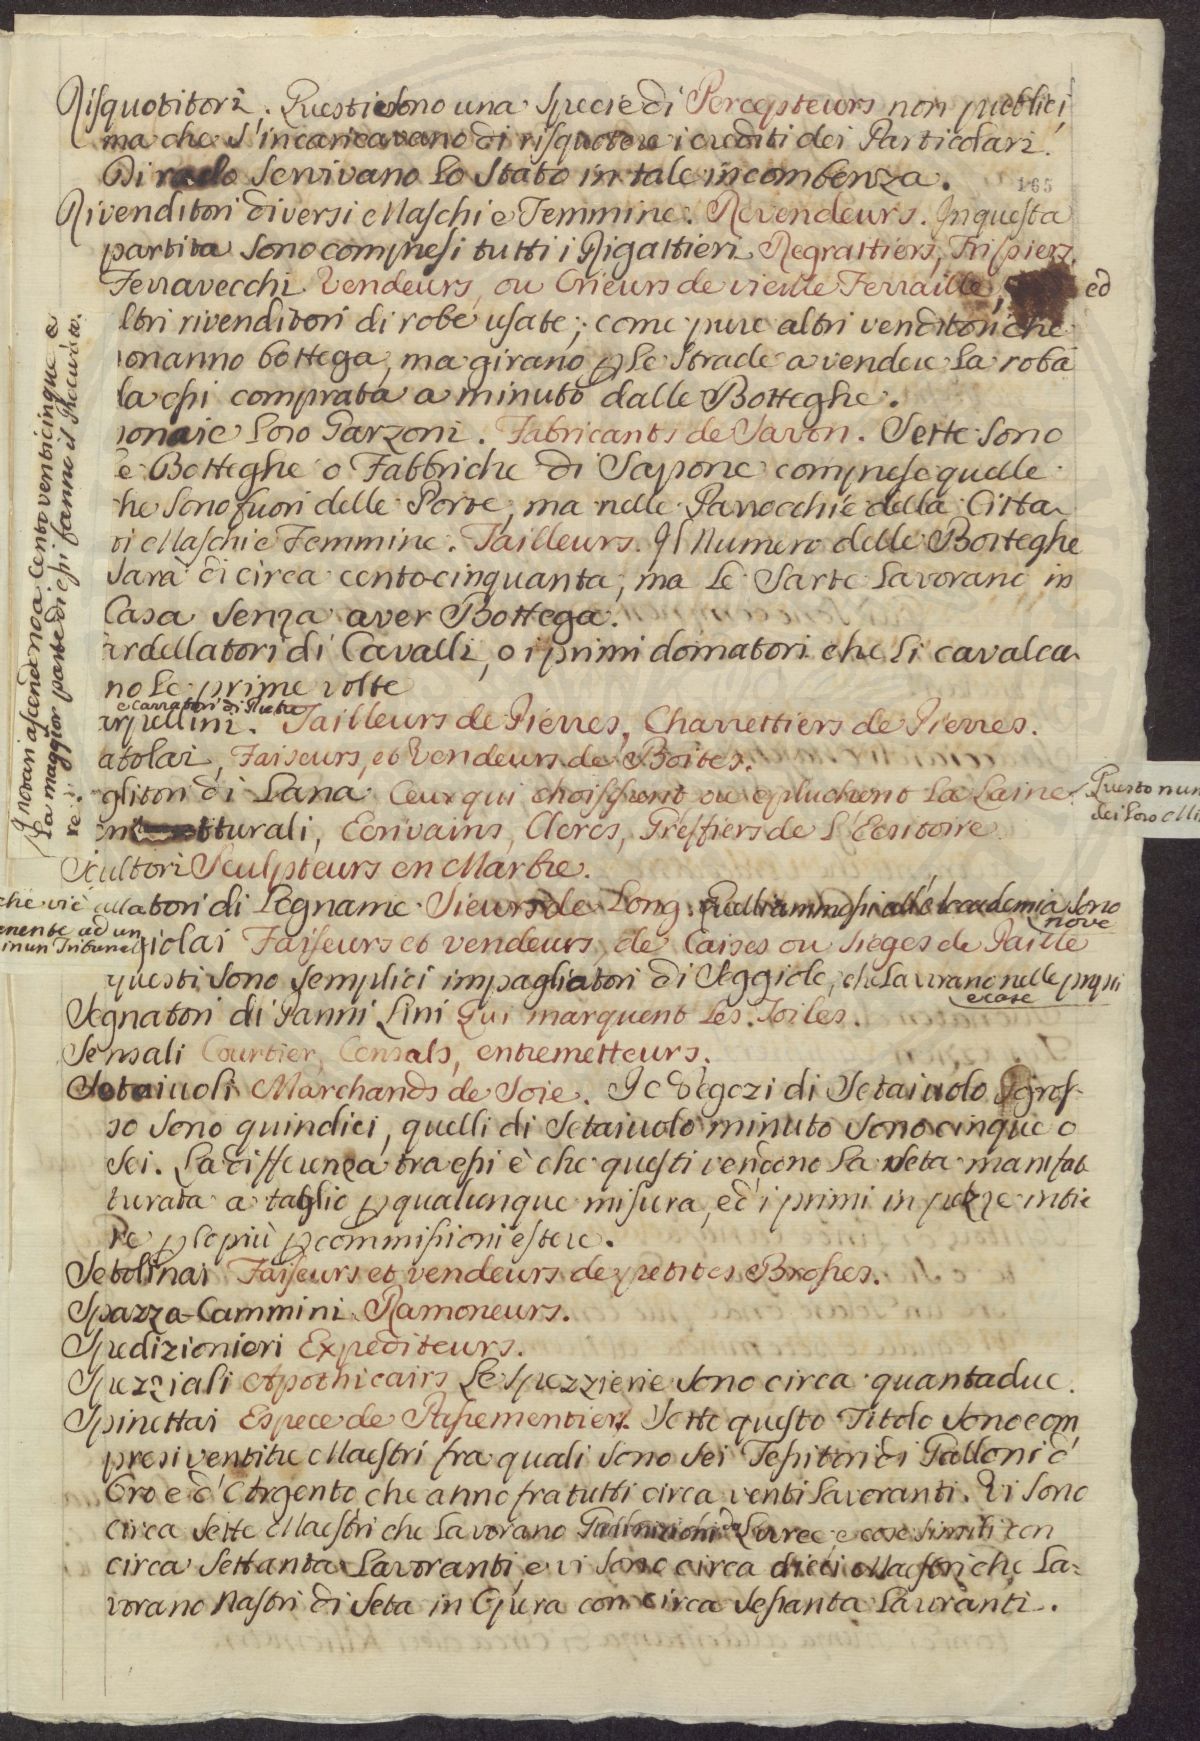 Risquotitori, Questi sono una specie di Percepteurs non pubblici,
ma che s'incaricavano di risquotere i crediti dei Particolari.
Di rado servivano lo Stato in tale incombenza.
165
Rivenditori diversi Maschi e Femmine. Revendeurs. In questa
partita sono compresi tutti i Rigattieri Regrattiers, Fripiers,
Ferravecchi Vendeurs, ou Crieurs de vieille Ferraille, ed
ltri rivenditori di robe usate; come pure altri venditori che
on anno bottega, ma girano p le strade a vendere la roba
da essi comprata a minuto dalle Botteghe.
onaie loro Garzoni. Fabricants de Savon. Sette sono
e Botteghe o Fabbriche di Sapone comprese quelle
he sono fuori delle Porte, ma nelle Parrocchie della Citta
ti Maschi e Femmine. Tailleurs. Il Numero delle Botteghe
sarà di circa cento cinquanta, ma le Sarte lavorano in
Casa senza aver Bottega.
ardellatori di Cavalli, o i primi domatori che li cavalca
no le prime volte
e carratori di Pietre
arpellini. Tailleurs de Pierres, Charrettiers de Pierres.
atolai, Faiseurs, et Vendeurs de Boites.
glitori di Lana Ceux qui choisissent ou epluchent la Laine.
tturali, Ecrivains, Clercs, Greffiers de l'Ecritoire.
Scultori Sculpteurs en Marbre.
atori di Legname Sieurs de Long. Quelli ammessi all'Accademia sono
nove
giolai Faiseurs et vendeurs de Caises ou sieges de Paille
questi sono semplici impagliatori di Seggiole, che lavorano nelle propri
e case
Segnatori di Panni Lini Qui marquent les Toiles.
Sensali Courtier, Censals, entremetteurs.
Setaiuoli Marchands de Soie. I Negozi di Setaiuolo grof-
so sono quindici, quelli di Setaiuolo minuto sono cinque o
sei. La differenza tra essi è che questi vendono la seta manifat
turata a taglio p qualunque misura, ed i primi in pezze intie
re p lo più p commissioni estere.
Setolinai Faiseurs et vendeurs de petites Broses.
Spazza-Cammini Ramoneurs.
Spedizionieri Expediteurs.
Speziali Apothicairs Le Spezzierie sono circa quantadue.
Spinettai Espece de Passementiers. Sotto questo Titolo sono com
presi ventitre Maestri fra quali sono sei Tessitori di Galloni d'
Oro e d'Argento che anno fra tutti circa venti Lavoranti. Vi sono
circa sette Maestri che lavorano da Livree e cose simili con
circa settanta Lavoranti, e vi sono circa dieci Maestri che la-
vorano Nastri di Seta in Opera con circa sessanta Lavoranti.
I notari ascendono a cento venticinque e
la maggior parte di essi fanno il Procurato
re
Questo num
dei loro Mi
che vi è
nente ad un
in un Tribunal